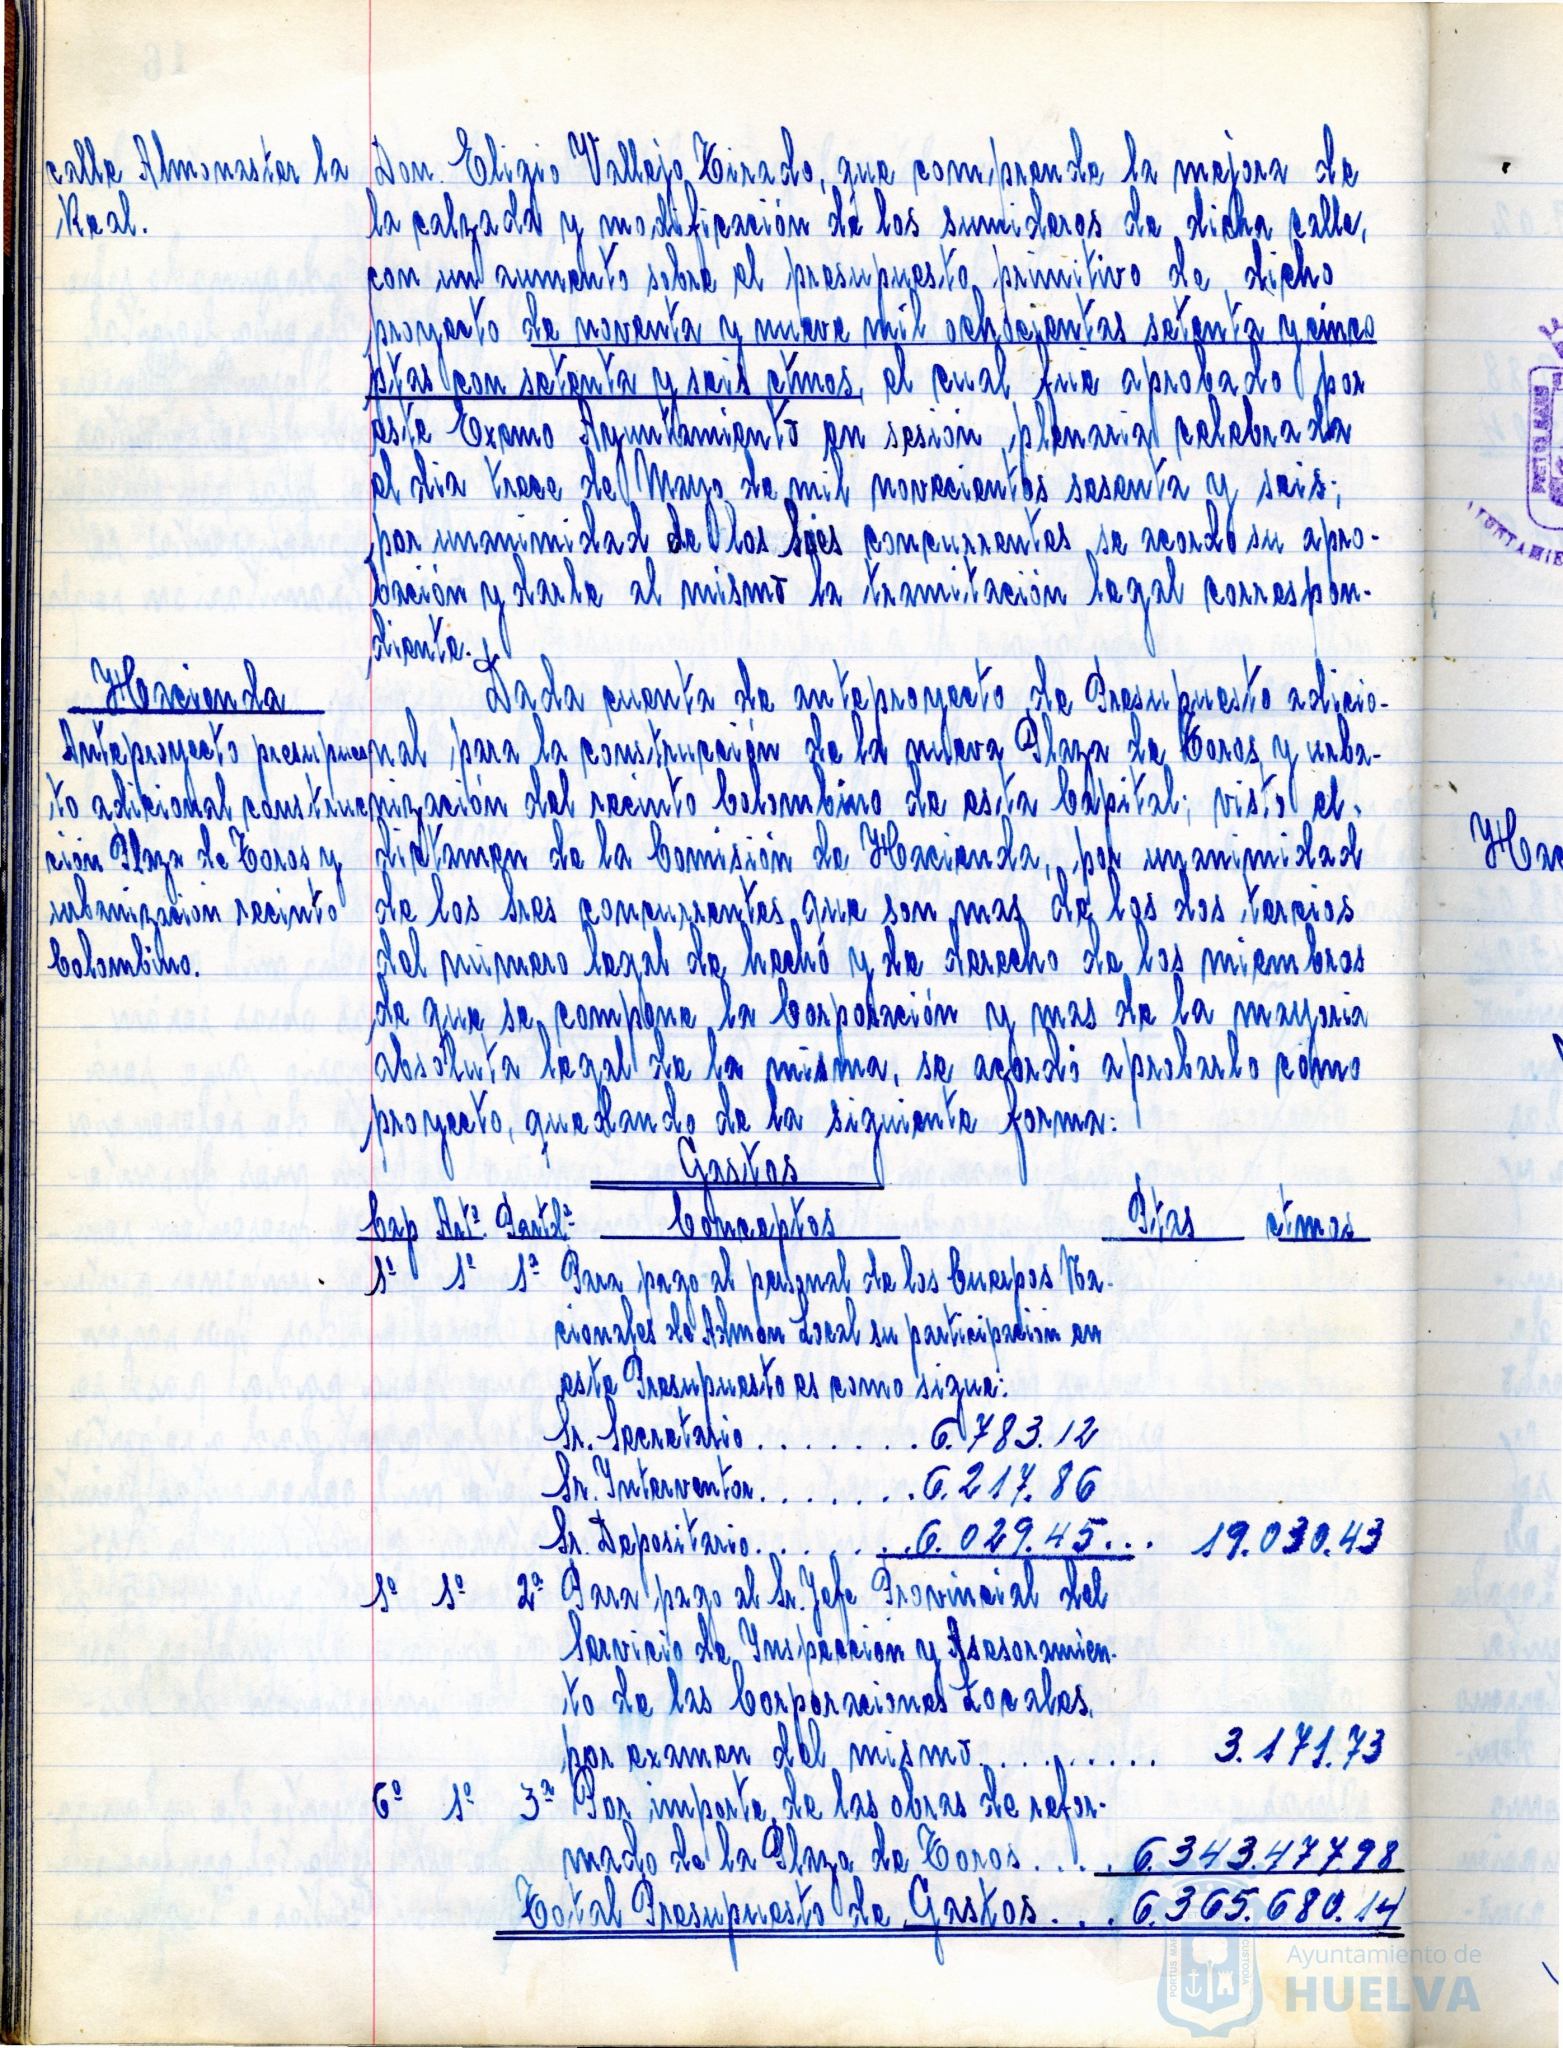 calle Almonaster la
Real.
Don Eligio Vallejo Tirado, que comprende la mejora de
la calzada y modificación de los sumideros de dicha calle,
con un aumento sobre el presupuesto primitivo de dicho
proyecto de noventa y nueve mil ochocientas setenta y cinco
ptas con setenta y seis ctmos, el cual fue aprobado por
este Excmo Ayuntamiento en sesión plenaria celebrada
el dia trece de Mayo de mil novecientos sesenta y seis;
por unanimidad de los Sres concurrentes se acordó su apro-
bación y darle al mismo la tramitación legal correspon-
diente.
Hacienda
Anteproyecto presupues
to adicional construc
ción Plaza de Toros y
urbanización recinto
Colombino.
Dada cuenta de anteproyecto de Presupuesto adicio-
nal para la construcción de la nueva Plaza de Toros y urba-
nización del recinto Colombino de esta Capital; visto el
dictamen de la Comisión de Hacienda, por unanimidad
de los Sres concurrentes que son mas de los dos tercios
del número legal de hecho y de derecho de los miembros
de que se compone la Corporación y mas de la mayoria
absoluta legal de la misma, se acordó aprobarlo como
proyecto, quedando de la siguiente forma:
Gastos
Cap Artº. Partdª Conceptos Ptas ctmos
1º 1º 1ª Para pago al personal de los Cuerpos Na-
cionales de Admon Local su participación en
este Presupuesto es como sigue:
Sr. Secretario . . . . . . . 6.783.12
Sr. Interventor . . . . . . . 6.217.86
Sr. Depositario . . . . . . . 6.029.45 . . . 19.030.43
1º 1º 2ª Para pago al Sr. Jefe Provincial del
Servicio de Inspección y Asesoramien-
to de las Corporaciones Locales,
por examen del mismo . . . . . . . . . 3.171.73
6º 1º 3ª Por importe de las obras de refor-
mado de la Plaza de Toros . . . . 6.343.477.98
Total Presupuesto de Gastos . . . 6.365.680.14
Ayuntamiento de
HUELVA